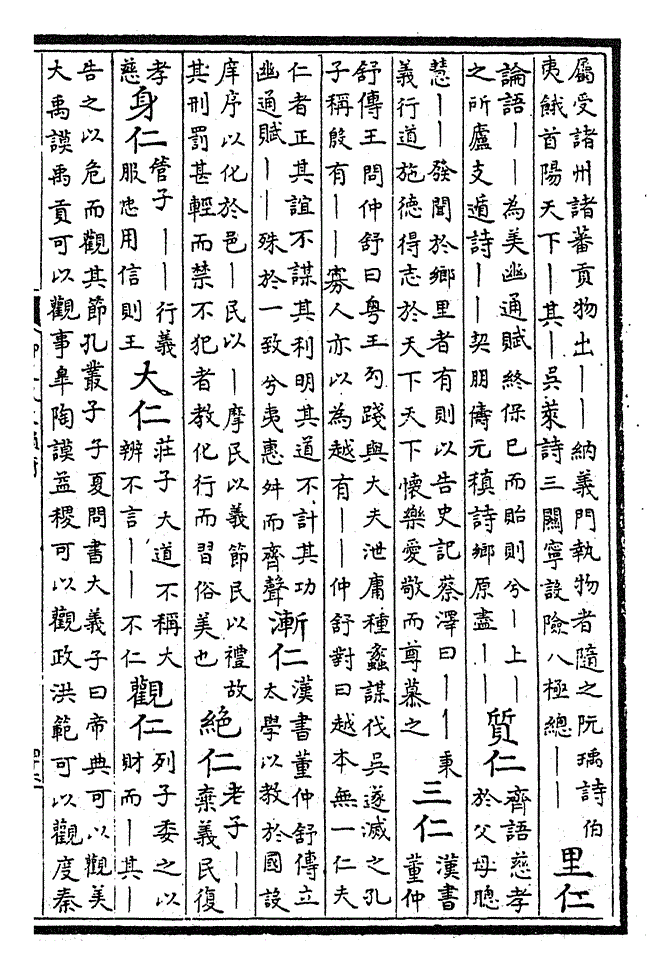 屬受諸州諸蕃貢物出丨丨納義門執物者隨之阮瑀詩伯
夷餓首陽天下丨其丨吳萊詩三關寧設險八極總丨丨
里仁
論語丨丨為美幽通賦終保已而貽則兮丨上丨
之所廬支遁詩丨丨契朋儔元稹詩鄉原盡丨丨
質仁
齊語慈孝
於父母聰
慧丨丨發聞於鄉里者有則以告史記蔡澤曰丨丨秉
義行道施德得志於天下天下懷樂愛敬而尊慕之
三仁
漢書
董仲
舒傳王問仲舒曰粤王勾踐與大夫泄庸種蠡謀伐吳遂滅之孔
子稱殷有丨丨寡人亦以為越有丨丨仲舒對曰越本無一仁夫
仁者正其誼不謀其利明其道不計其功
幽通賦丨丨殊於一致兮夷惠舛而齊聲
漸仁
漢書董仲舒傳立
太學以教於國設
庠序以化於邑丨民以丨摩民以義節民以禮故
其刑罰甚輕而禁不犯者教化行而習俗美也
絕仁
老子丨丨
棄義民復
孝
慈
身仁
管子丨丨行義
服忠用信則王
大仁
莊子大道不稱大
辨不言丨丨不仁
觀仁
列子委之以
財而丨其丨
告之以危而觀其節孔叢子子夏問書大義子曰帝典可以觀美
大禹謨禹貢可以觀事臯陶謨益稷可以觀政洪範可以觀度秦